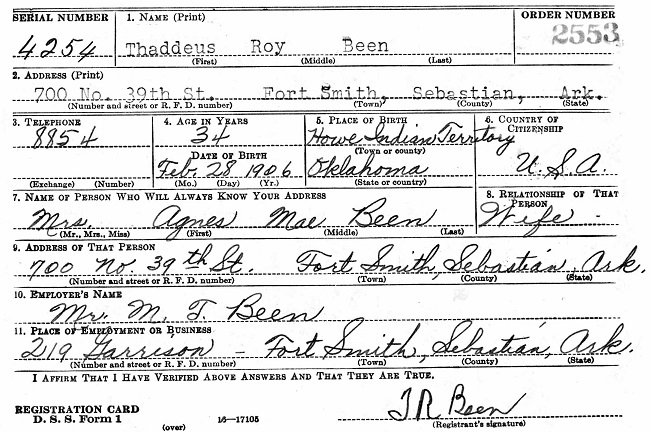 SERIAL NUMBER 1. NAME (Print) ORDER NUMBER
4254 Thaddeus Roy Been 2553
(First) (Middle) (Last)
2. ADDRESS (Print)
700 No. 39th St. Fort Smith, Sebastian, Ark.
(Number and street or R. F. D. number) (Town) (County) (State)
3. TELEPHONE 4. AGE IN YEARS 5. PLACE OF BIRTH 6. COUNTRY OF CITIZENSHIP
8854 34 Howe Indian Territory
(Town or county)
DATE OF BIRTH
Feb. 28 1906 Oklahoma U.S.A.
(Exchange) (Number) (Mo.) (Day) (Yr.) (State or country)
7. NAME OF PERSON WHO WILL ALWAYS KNOW YOUR ADDRESS 8. RELATIONSHIP OF THAT PERSON
Mrs. Agnes Mae Been Wife
(Mr., Mrs., Miss) (First) (Middle) (Last)
9. ADDRESS OF THAT PERSON
700 No. 39th St. Fort Smith, Sebastian, Ark.
(Number and street or R. F. D. number) (Town) (County) (State)
10. EMPLOYER'S NAME
Mr. M. T. Been
11. PLACE OF EMPLOYMENT OR BUSINESS
219 Garrison - Fort Smith, Sebastian, Ark.
(Number and street or R. F. D. number) (Town) (County) (State)
I AFFIRM THAT I HAVE VERIFIED ABOVE ANSWERS AND THAT THEY ARE TRUE.
T R Been
REGISTRATION CARD
D. S. S. Form 1 16-17105 (Registrant's signature)
(over)